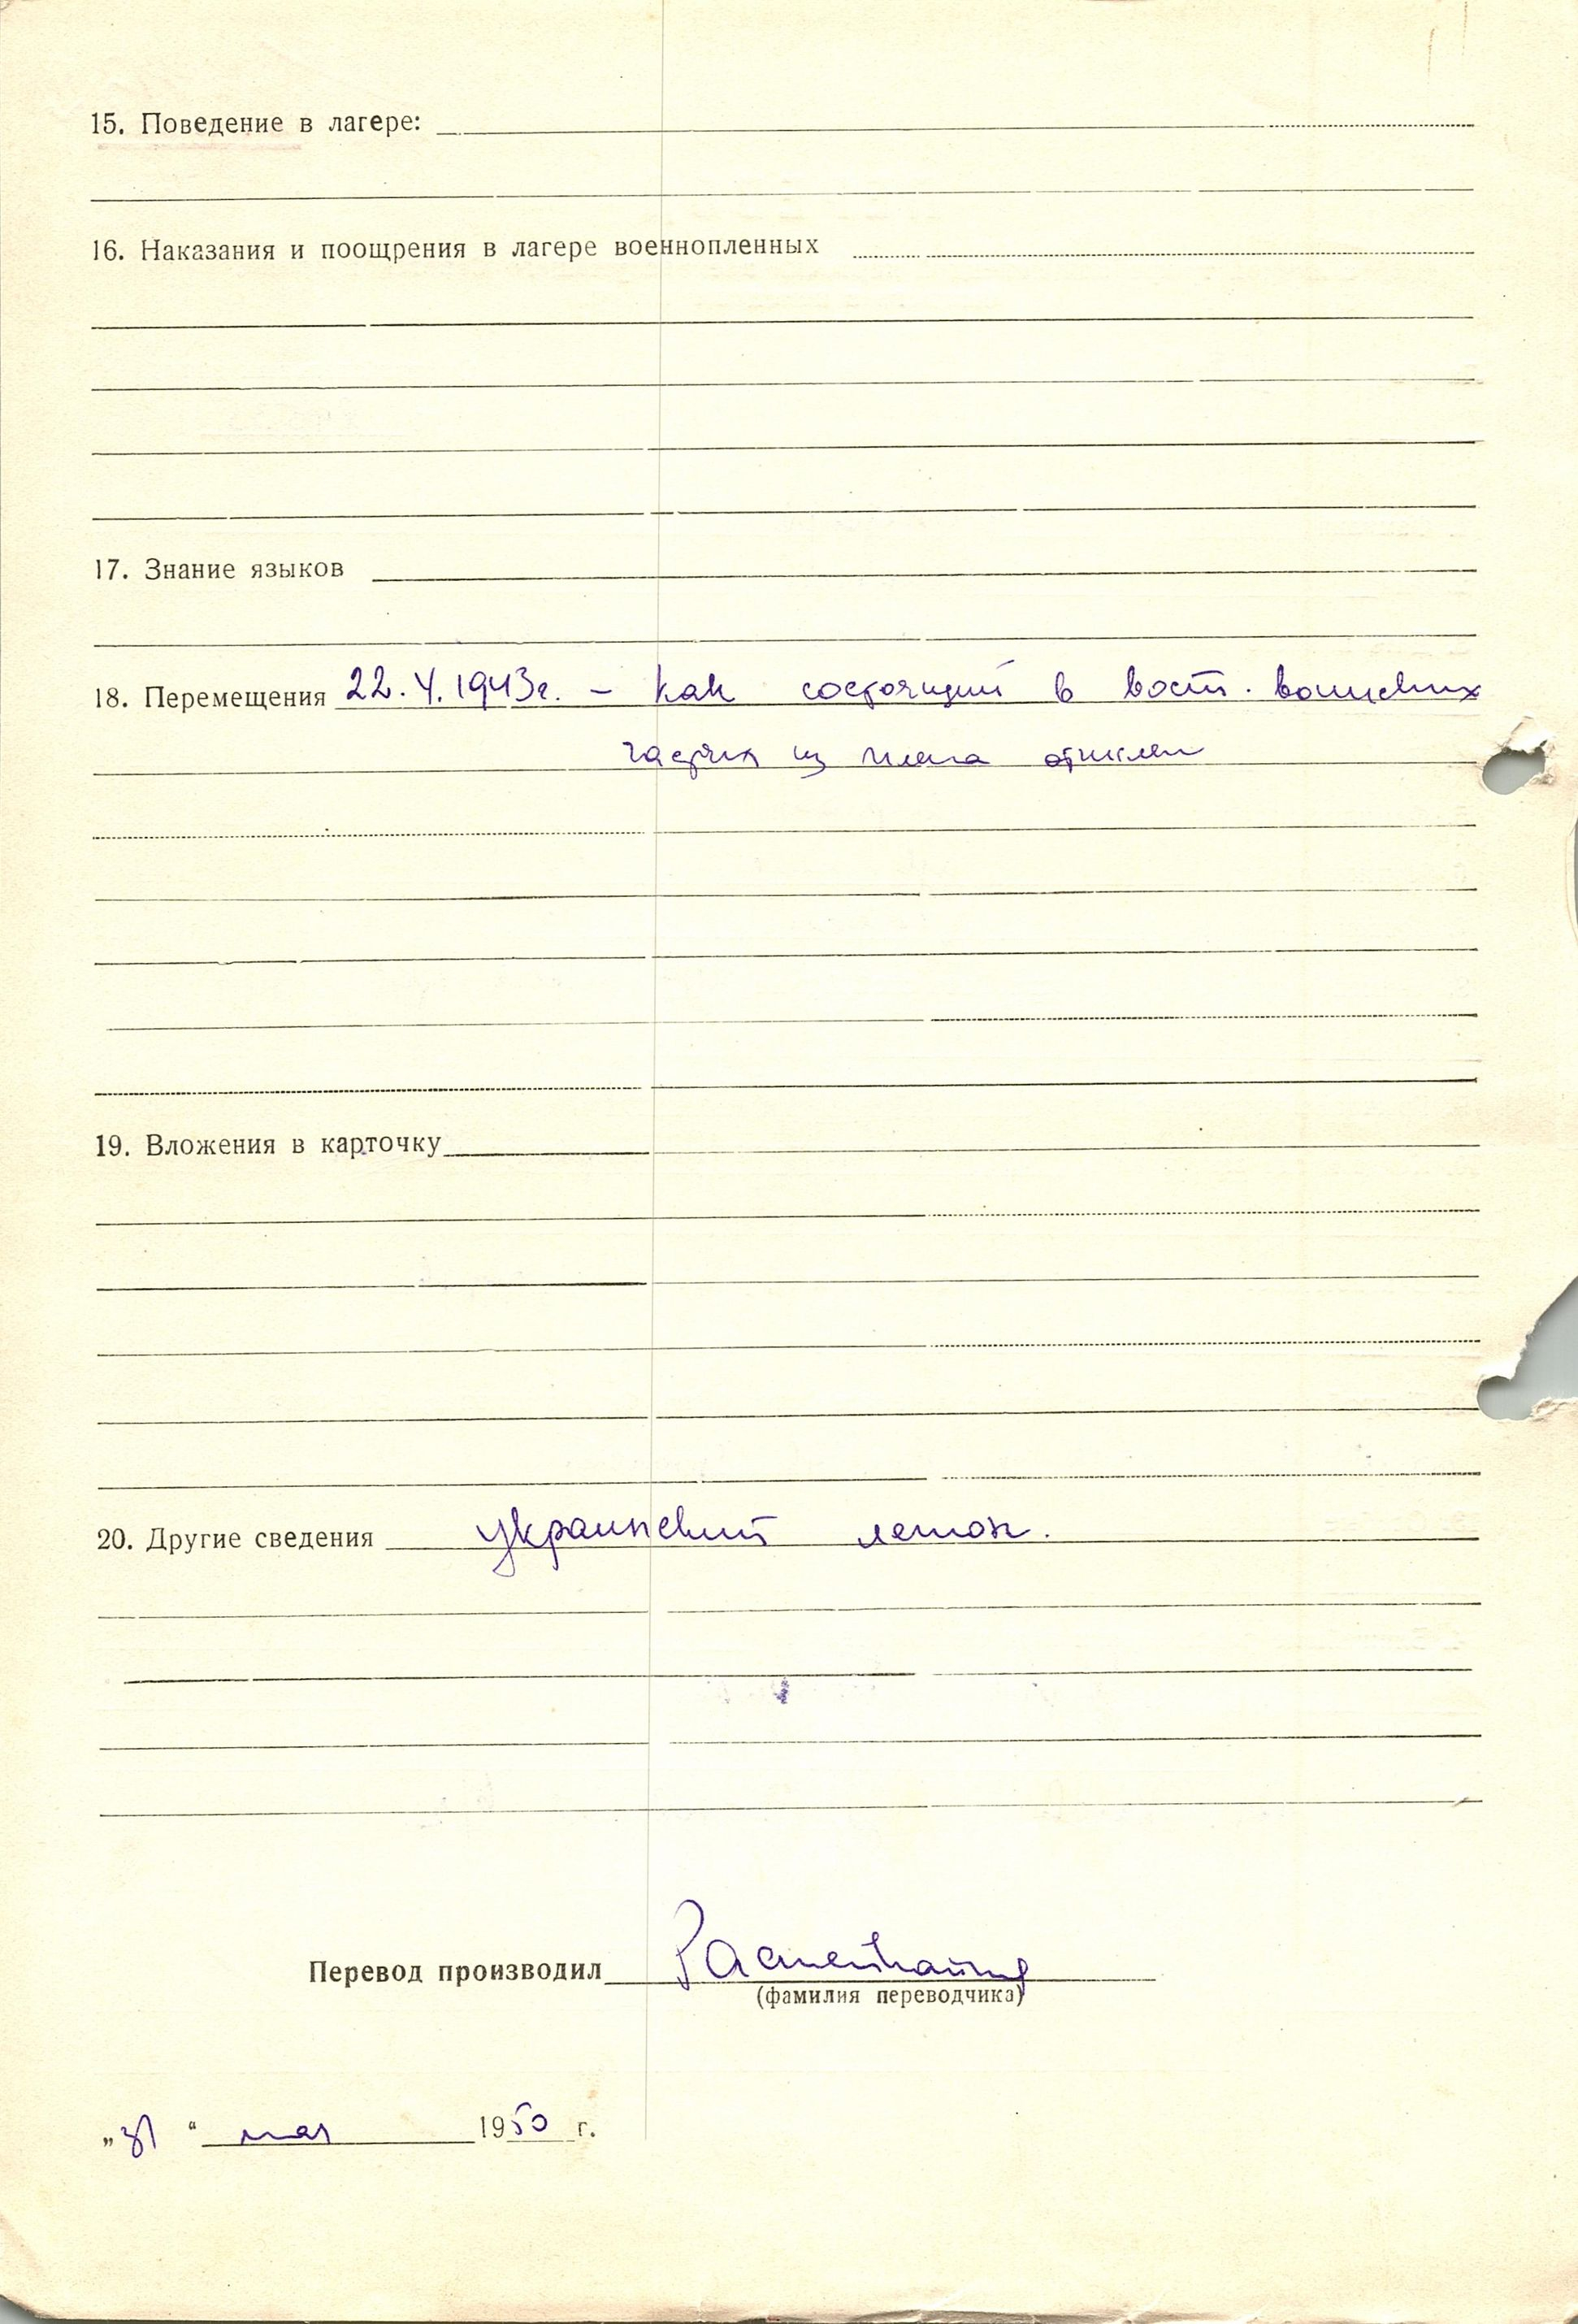 15. Поведение в лагере:
16. Наказания и поощрения в лагере военнопленных
17. Знание языков
18. Перемещения 22.V.1943г. – как состоящий в вост. воинских
частях из плена отпущен
19. Вложения в карточку
20. Другие сведения украинский легион.
Перевод производил
(фамилия переводчика)
„31“ мая 1950 г.